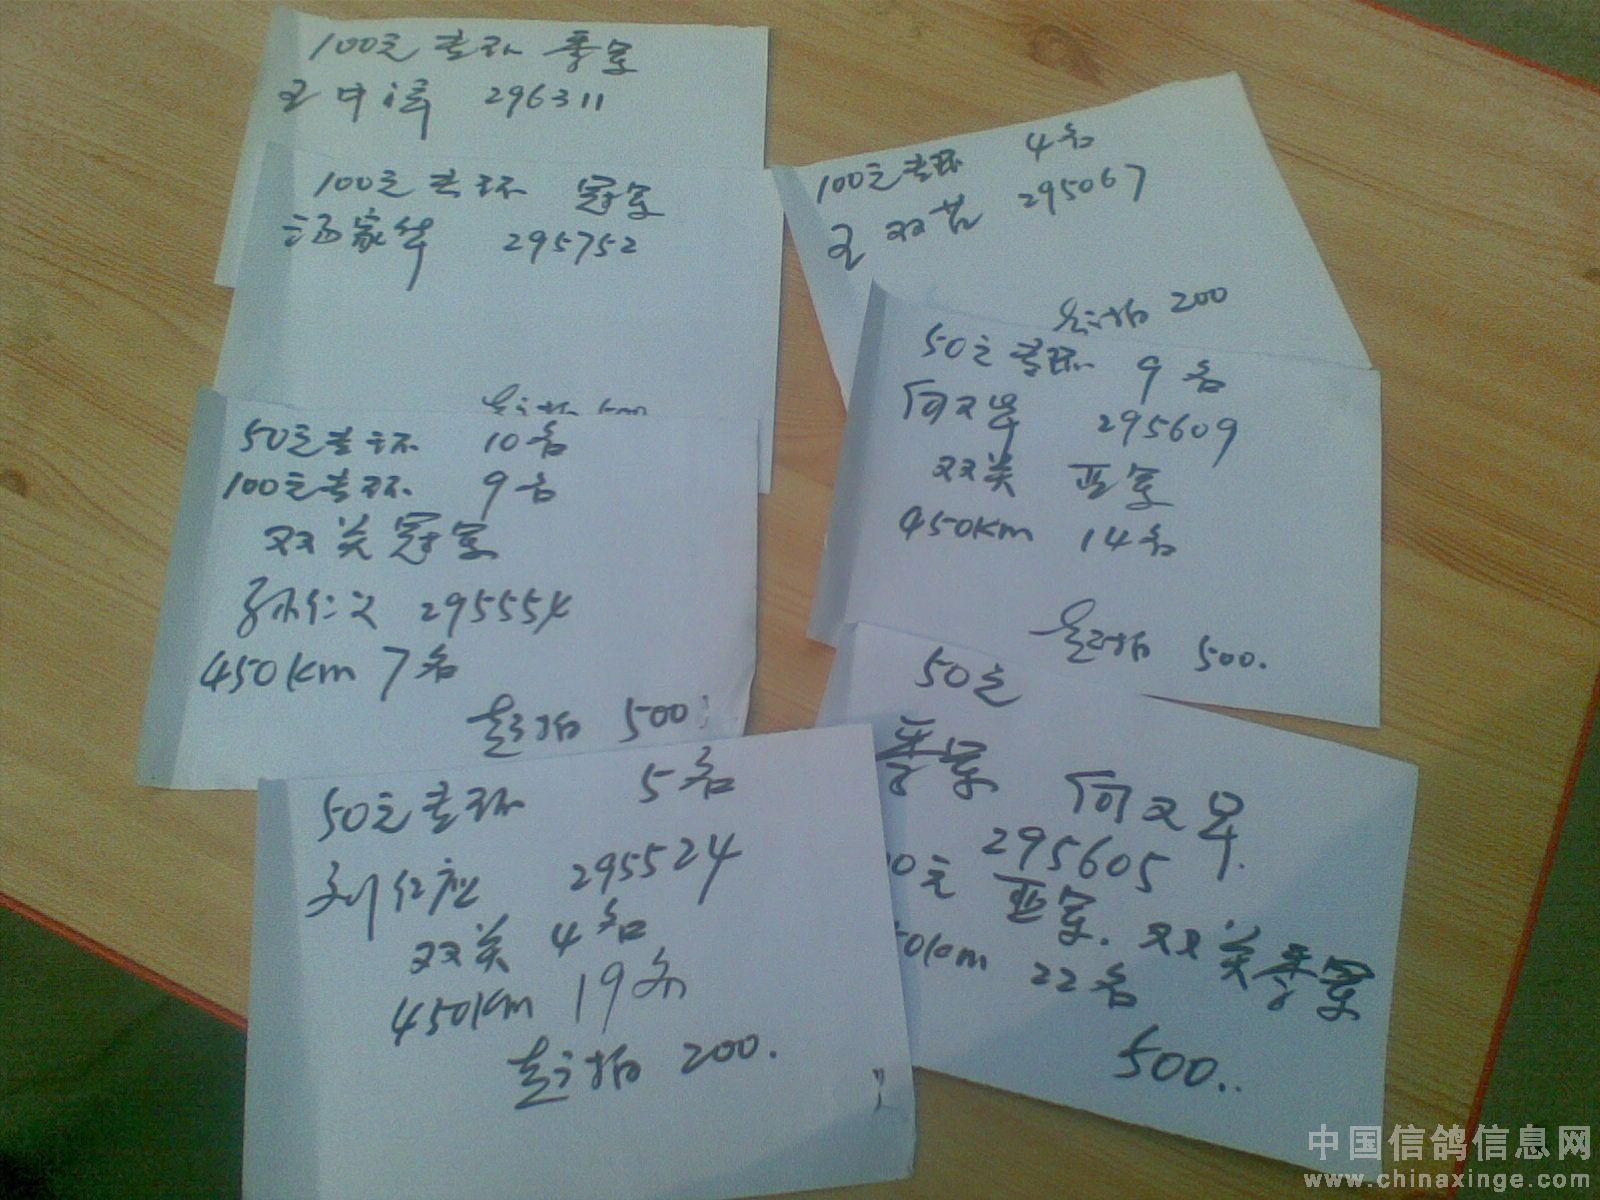 100元专环 季军
王中泽 296311
100元专环 冠军
汤家华 295752
50元专环 10名
100元专环 9名
双关冠军
孙仁义 295554
450km 7名
起拍 500
50元专环 5名
刘红应 295524
双关 4名
450km 19名
起拍 200.
100元专环 4名
王双苗 295067
起拍 200
50元专环 9名
何文军 295609
双关 亚军
450km 14名
起拍 500.
50元
季军 何文军.
295605
0元 亚军. 双关季军
50km 22名
500..
中国信鸽信息网
www.chinaxinge.com